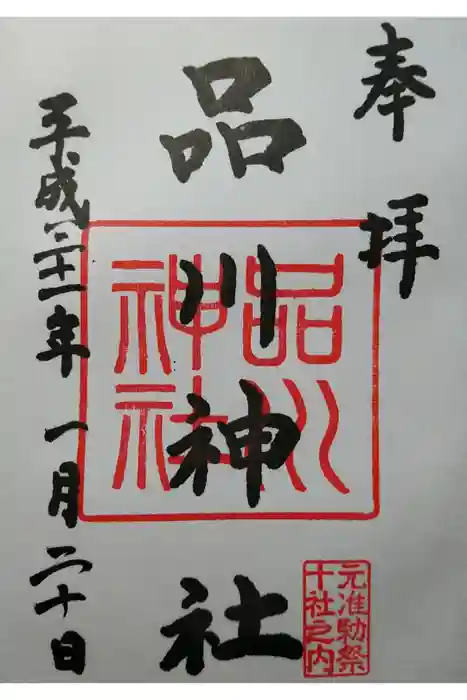 奉拝
品川神社
品川
神社
元准勅祭
十社之内
平成三十一年一月二十日